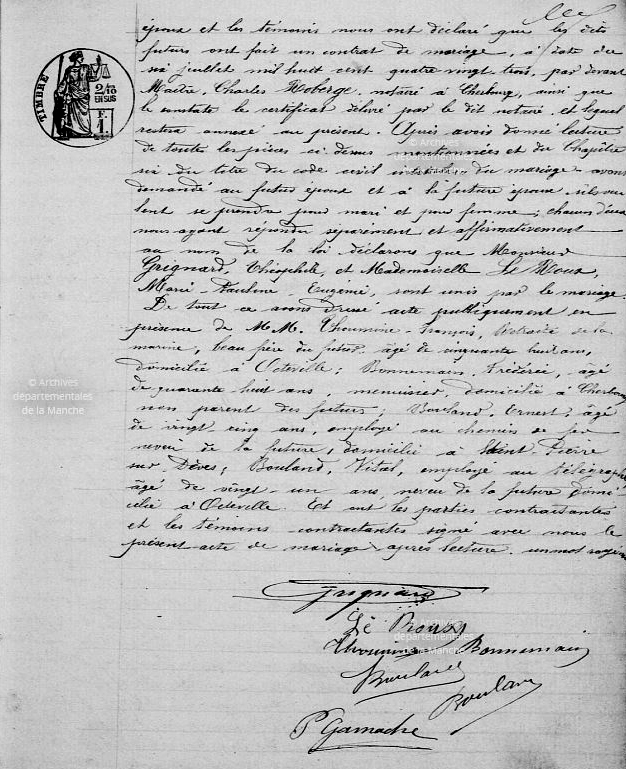 époux et les témoins nous ont déclaré que les dits
futurs ont fait un contrat de mariage, à date du
six juillet mil huit cent quatre vingt trois, par devant
Maître Charles Roberge, notaire à Cherbourg, ainsi que
le constate le certificat délivré par le dit notaire et lequel
restera annexé au présent. Après avoir donné lecture
de toutes les pièces ci dessus mentionnées et du Chapitre
six du titre du code civil intitulé du mariage avons
demandé au futur époux et à la future épouse s'ils veu
lent se prendre pour mari et pour femme; chacun d'eux
nous ayant répondu séparément et affirmativement
au nom de la loi déclarons que Monsieur
Grignard, Théophile, et Mademoiselle Le Roux,
Marie Pauline Eugénie, sont unis par le mariage.
De tout ce avons dressé acte publiquement en
présence de M.M. Thoumine François, Retraité de la
marine, beau père du futur, âgé de cinquante huit ans,
domicilié à Octeville; Bonnemain, Frédéric, âgé
de quarante huit ans, menuisier, domicilié à Cherbourg
non parent des futurs; Bouland, Ernest, âgé
de vingt cinq ans, employé au chemin de fer
neveu de la future, domicilié à Saint Pierre
sur Dives; Bouland, Vital, employé au télégraphe
âgé de vingt un ans, neveu de la future domi
cilié à Octeville. Et ont les parties contractantes
et les témoins contractantes signé avec nous le
présent acte de mariage après lecture. un mot rayé
Grignard
Le Roux
Thoumine Bonnemain
Bouland
Bouland
P Gamache
TIMBRE
2/10
EN SUS
F.
1.
© Archives
départementales
de la Manche
© Archives
départementales
de la Manche
© Archives
départementales
de la Manche